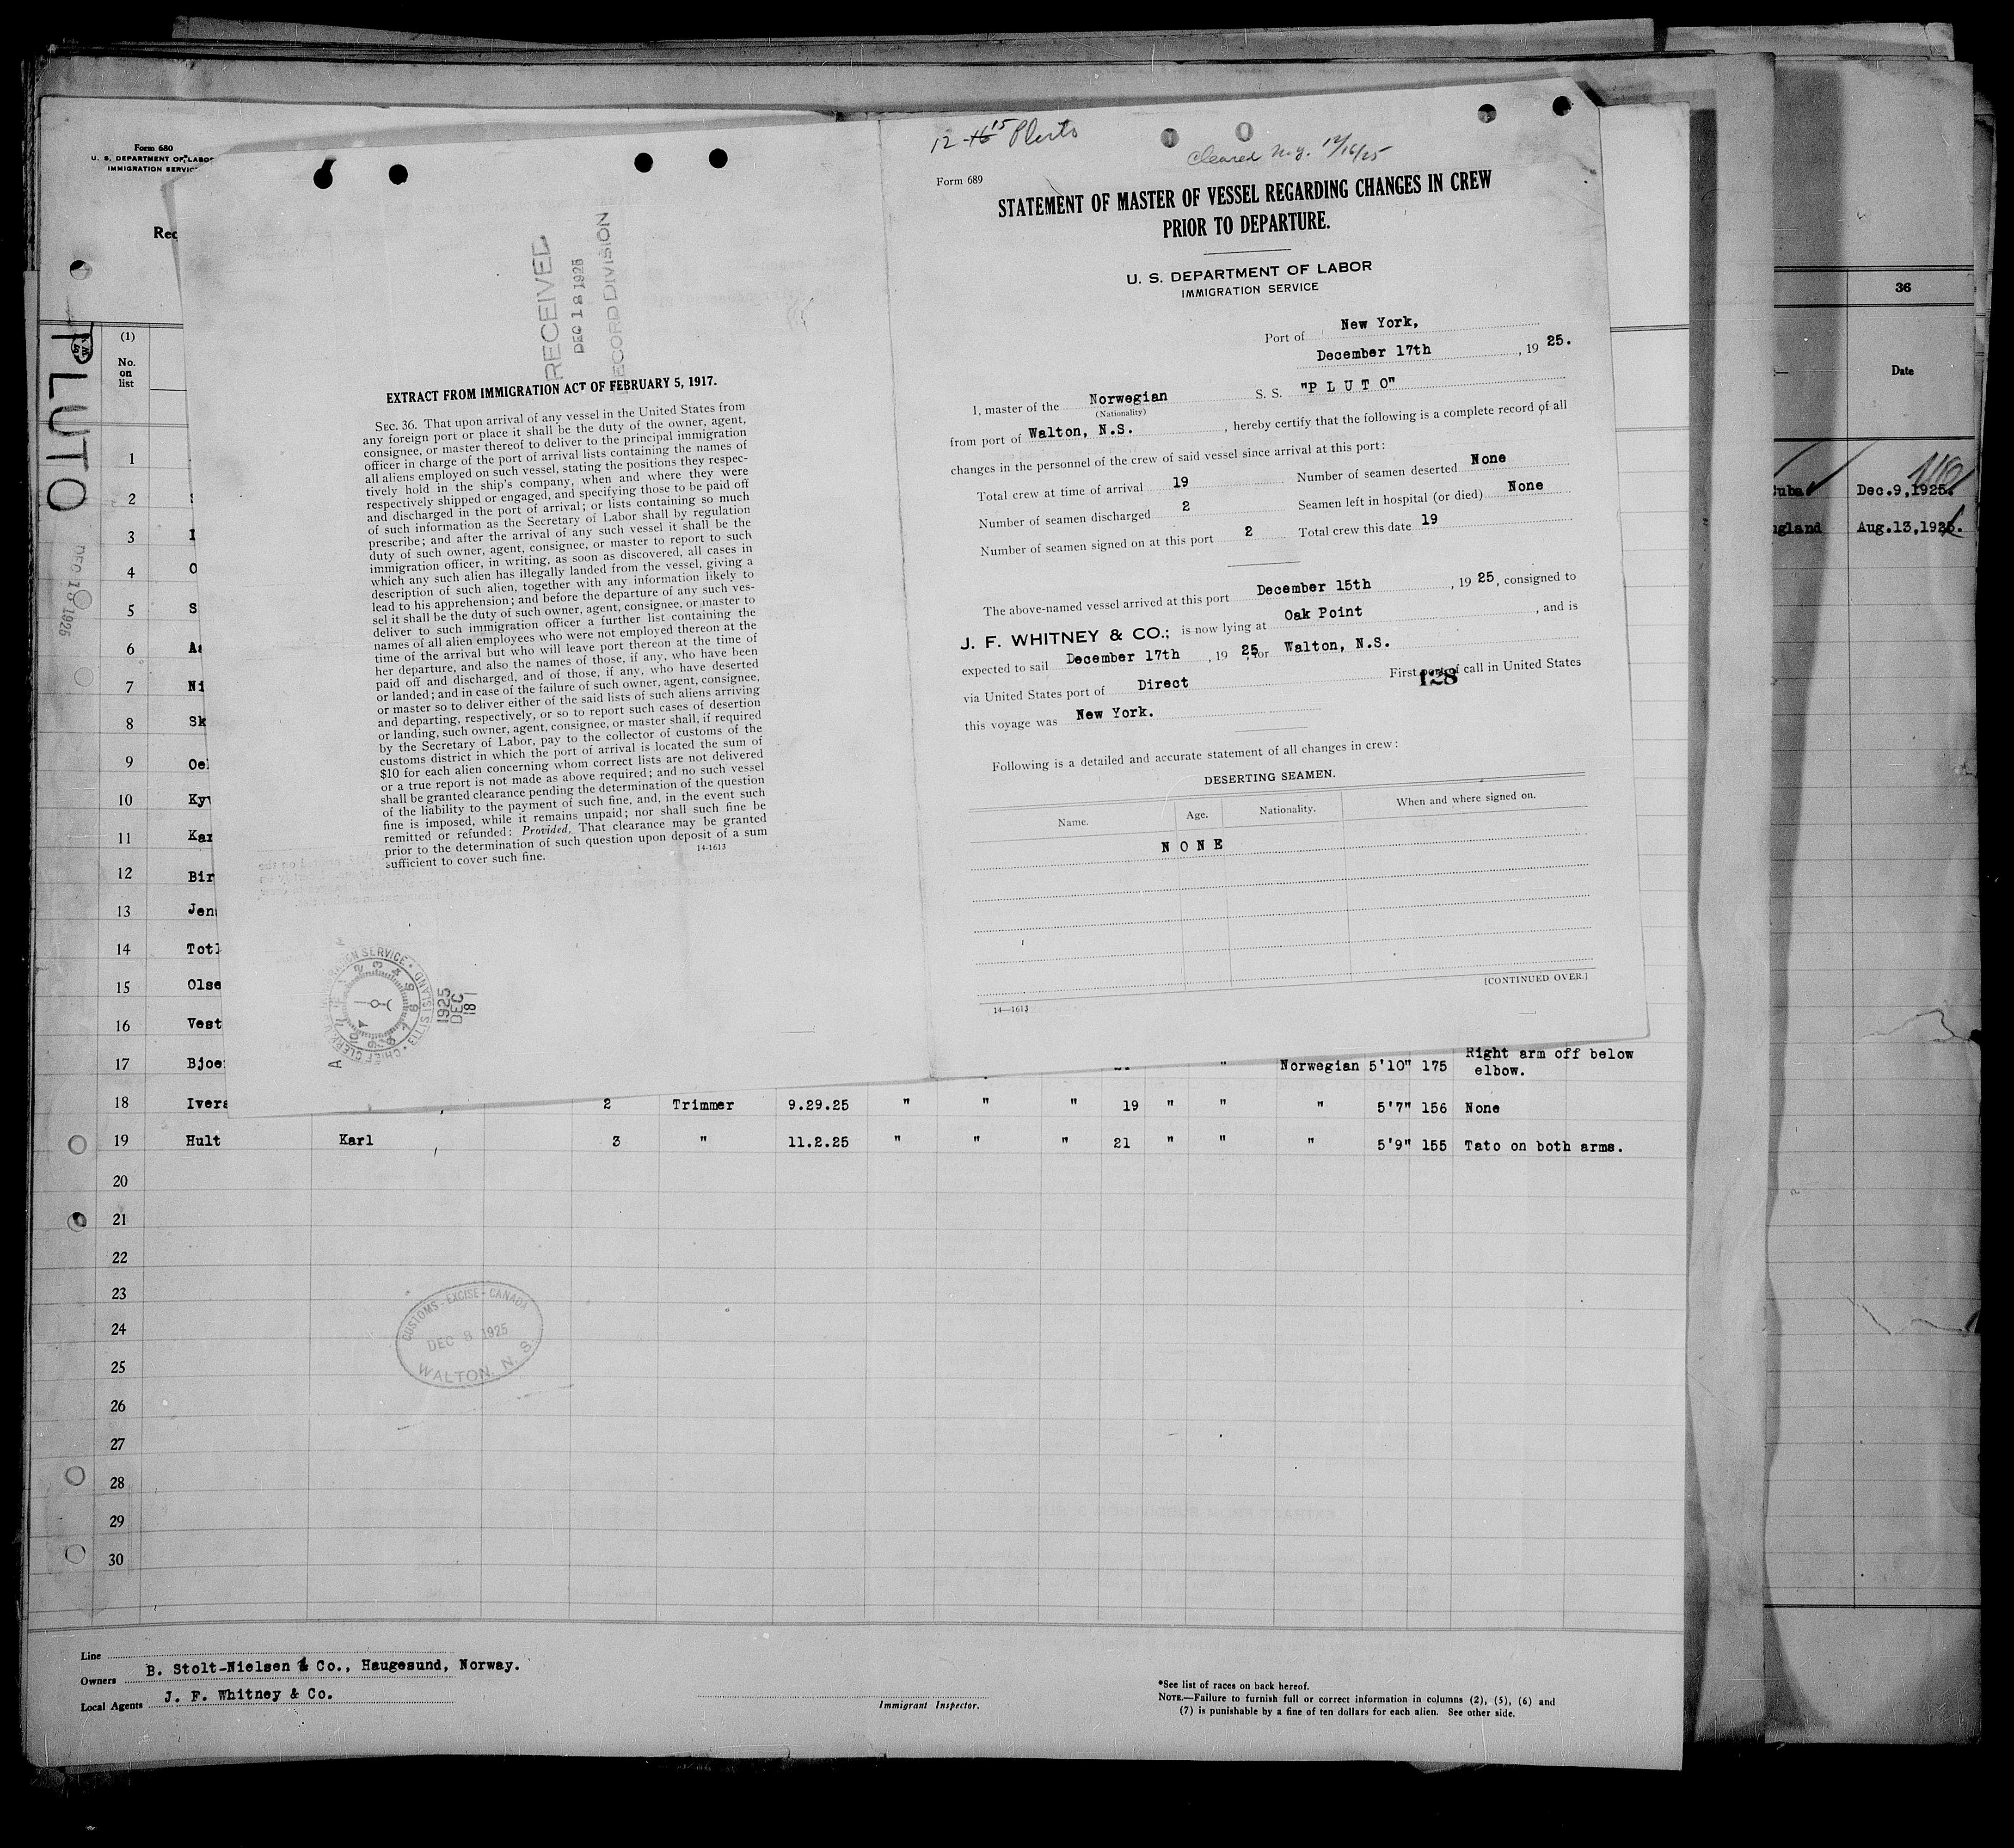 Form 680
U. S. DEPARTMENT OF LABOR
IMMIGRATION SERVICE
PLUTO
DEC 19 1925
(1)
No.
on
list
1
2
3
4
5
6
7
8
9
10
11
12
13
14
15
16
17
18
19
20
21
22
23
24
25
26
27
28
29
30
RECEIVED
DEC 18 1925
RECORD DIVISION
EXTRACT FROM IMMIGRATION ACT OF FEBRUARY 5, 1917.
SEC. 36. That upon arrival of any vessel in the United States from
any foreign port or place it shall be the duty of the owner, agent,
consignee, or master thereof to deliver to the principal immigration
officer in charge of the port of arrival lists containing the names of
all aliens employed on such vessel, stating the positions they respec-
tively hold in the ship's company, when and where they were
respectively shipped or engaged, and specifying those to be paid off
and discharged in the port of arrival; or lists containing so much
of such information as the Secretary of Labor shall by regulation
prescribe; and after the arrival of any such vessel it shall be the
duty of such owner, agent, consignee, or master to report to such
immigration officer, in writing, as soon as discovered, all cases in
which any such alien has illegally landed from the vessel, giving a
description of such alien, together with any information likely to
lead to his apprehension; and before the departure of any such ves-
sel it shall be the duty of such owner, agent, consignee, or master to
deliver to such immigration officer a further list containing the
names of all alien employees who were not employed thereon at the
time of the arrival but who will leave port thereon at the time of
her departure, and also the names of those, if any, who have been
paid off and discharged, and of those, if any, who have deserted
or landed; and in case of the failure of such owner, agent, consignee,
or master so to deliver either of the said lists of such aliens arriving
and departing, respectively, or so to report such cases of desertion
or landing, such owner, agent, consignee, or master shall, if required
by the Secretary of Labor, pay to the collector of customs of the
customs district in which the port of arrival is located the sum of
$10 for each alien concerning whom correct lists are not delivered
or a true report is not made as above required; and no such vessel
shall be granted clearance pending the determination of the question
of the liability to the payment of such fine, and, in the event such
fine is imposed, while it remains unpaid; nor shall such fine be
remitted or refunded: Provided, That clearance may be granted
prior to the determination of such question upon deposit of a sum
sufficient to cover such fine.
14-1613
CHIEF CLERK U.S. IMMIGRATION SERVICE • ELLIS ISLAND •
1925
DEC
18
12-15 Pluto
Cleared N.Y. 12/16/25
Form 689
STATEMENT OF MASTER OF VESSEL REGARDING CHANGES IN CREW
PRIOR TO DEPARTURE.
U. S. DEPARTMENT OF LABOR
IMMIGRATION SERVICE
Port of New York,
December 17th, 19 25.
I, master of the Norwegian S. S. "P L U T O"
(Nationality)
from port of Walton, N.S., hereby certify that the following is a complete record of all
changes in the personnel of the crew of said vessel since arrival at this port:
Total crew at time of arrival 19 Number of seamen deserted None
Number of seamen discharged 2 Seamen left in hospital (or died) None
Number of seamen signed on at this port 2 Total crew this date 19
The above-named vessel arrived at this port December 15th, 19 25, consigned to
J. F. WHITNEY & CO.; is now lying at Oak Point, and is
expected to sail December 17th, 19 25, for Walton, N.S.
via United States port of Direct First port of call in United States
128
this voyage was New York.
Following is a detailed and accurate statement of all changes in crew:
DESERTING SEAMEN.
Name. Age. Nationality. When and where signed on.
N O N E
[CONTINUED OVER.]
14—1613
36
Date
Cuba Dec.9,1925.
England Aug.13,1925.
Norwegian 5'10" 175 Right arm off below
elbow.
2 Trimmer 9.29.25 " " " 19 " " " 5'7" 156 None
Hult Karl 3 " 11.2.25 " " " 21 " " " 5'9" 155 Tato on both arms.
CUSTOMS - EXCISE - CANADA
DEC 8 1925
WALTON, N. S.
Line
Owners B. Stolt-Nielsen & Co., Haugesund, Norway.
Local Agents J. F. Whitney & Co.
Immigrant Inspector.
*See list of races on back hereof.
NOTE.—Failure to furnish full or correct information in columns (2), (5), (6) and
(7) is punishable by a fine of ten dollars for each alien. See other side.